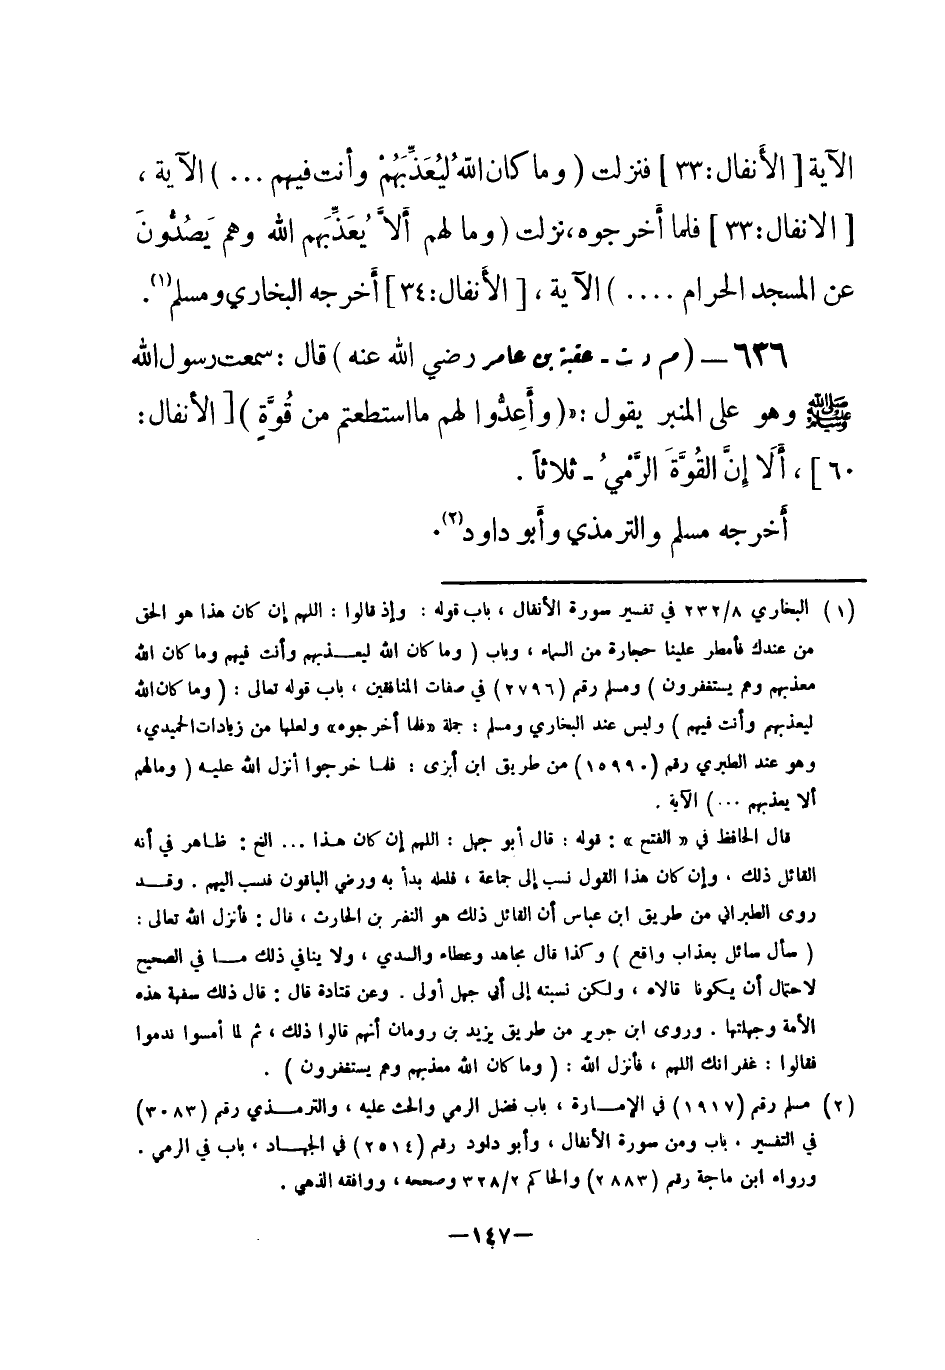 الآية [ الأَنفال : ٣٣ ] فنزلت ( وما كان اللهُ ليُعَذِّبَهُمْ وأنت فيهم ... ) الآية ،
[ الانفال : ٣٣ ] فلما أخرجوه ، نزلت ( وما لهم أَلاَّ يُعَذِّبَهم الله وهم يَصُدُّونَ
عن المسجد الحرام .... ) الآية ، [ الأَنفال : ٣٤ ] أخرجه البخاري ومسلم (١) .
٦٣٦ — ( م ر ت - عقبة بن عامر رضي الله عنه ) قال : سمعت رسول الله
ﷺ وهو على المنبر يقول : «( وأَعِدُّوا لهم ما استطعتم من قُوَّةٍ ) [ الأنفال :
٦٠ ] ، أَلَا إِنَّ القُوَّةَ الرَّمْيُ ـ ثلاثاً .
أَخرجه مسلم والترمذي وأَبو داود (٢) .
(١) البخاري ٢٣٢/٨ في تفسير سورة الأنفال ، باب قوله : وإذ قالوا : اللهم إن كان هذا هو الحق
من عندك فأمطر علينا حجارة من السماء ، وباب ( وما كان الله ليعـــذبهم وأنت فيهم وما كان الله
معذبهم وهم يستغفرون ) ومسلم رقم (٢٧٩٦) في صفات المنافقين ، باب قوله تعالى : ( وما كان الله
ليعذبهم وأنت فيهم ) وليس عند البخاري ومسلم : جملة «فلما أخرجوه» ولعلها من زيادات الحميدي،
وهو عند الطبري رقم (١٥٩٩٠) من طريق ابن أبزى : فلمـا خرجوا أنزل الله عليـه ( ومالهم
ألا يعذبهم ...) الآية .
قال الحافظ في « الفتح » : قوله : قال أبو جهل : اللهم إن كان هـذا ... الخ : ظـاهر في أنه
القائل ذلك ، وإن كان هذا القول نسب إلى جماعة ، فلعله بدأ به ورضي الباقون فنسب اليهم . وقـــد
روى الطبراني من طريق ابن عباس أن القائل ذلك هو النضر بن الحارث ، قال : فأنزل الله تعالى :
( سأل سائل بعذاب واقع ) وكذا قال مجاهد وعطاء والسدي ، ولا ينافي ذلك مـــا في الصحيح
لاحتمال أن يـكونا قالاه ، ولكن نسبته إلى أبي جهل أولى . وعن قتادة قال : قال ذلك سفهة هذه
الأمة وجهلتها . وروى ابن جرير من طريق يزيد بن رومان أنهم قالوا ذلك ، ثم لما أمسوا ندموا
فقالوا : غفرانك اللهم ، فأنزل الله : ( وما كان الله معذبهم وهم يستغفرون ) .
(٢) مسلم رقم (١٩١٧) في الإمـــارة ، باب فضل الرمي والحث عليه ، والترمـــذي رقم (٣٠٨٣)
في التفسير ، باب ومن سورة الأنفال ، وأبو داود رقم (٢٥١٤) في الجهـــاد ، باب في الرمي .
ورواه ابن ماجة رقم (٢٨٨٣) والحاكم ٣٢٨/٢ وصححه ، ووافقه الذهبي .
—١٤٧—